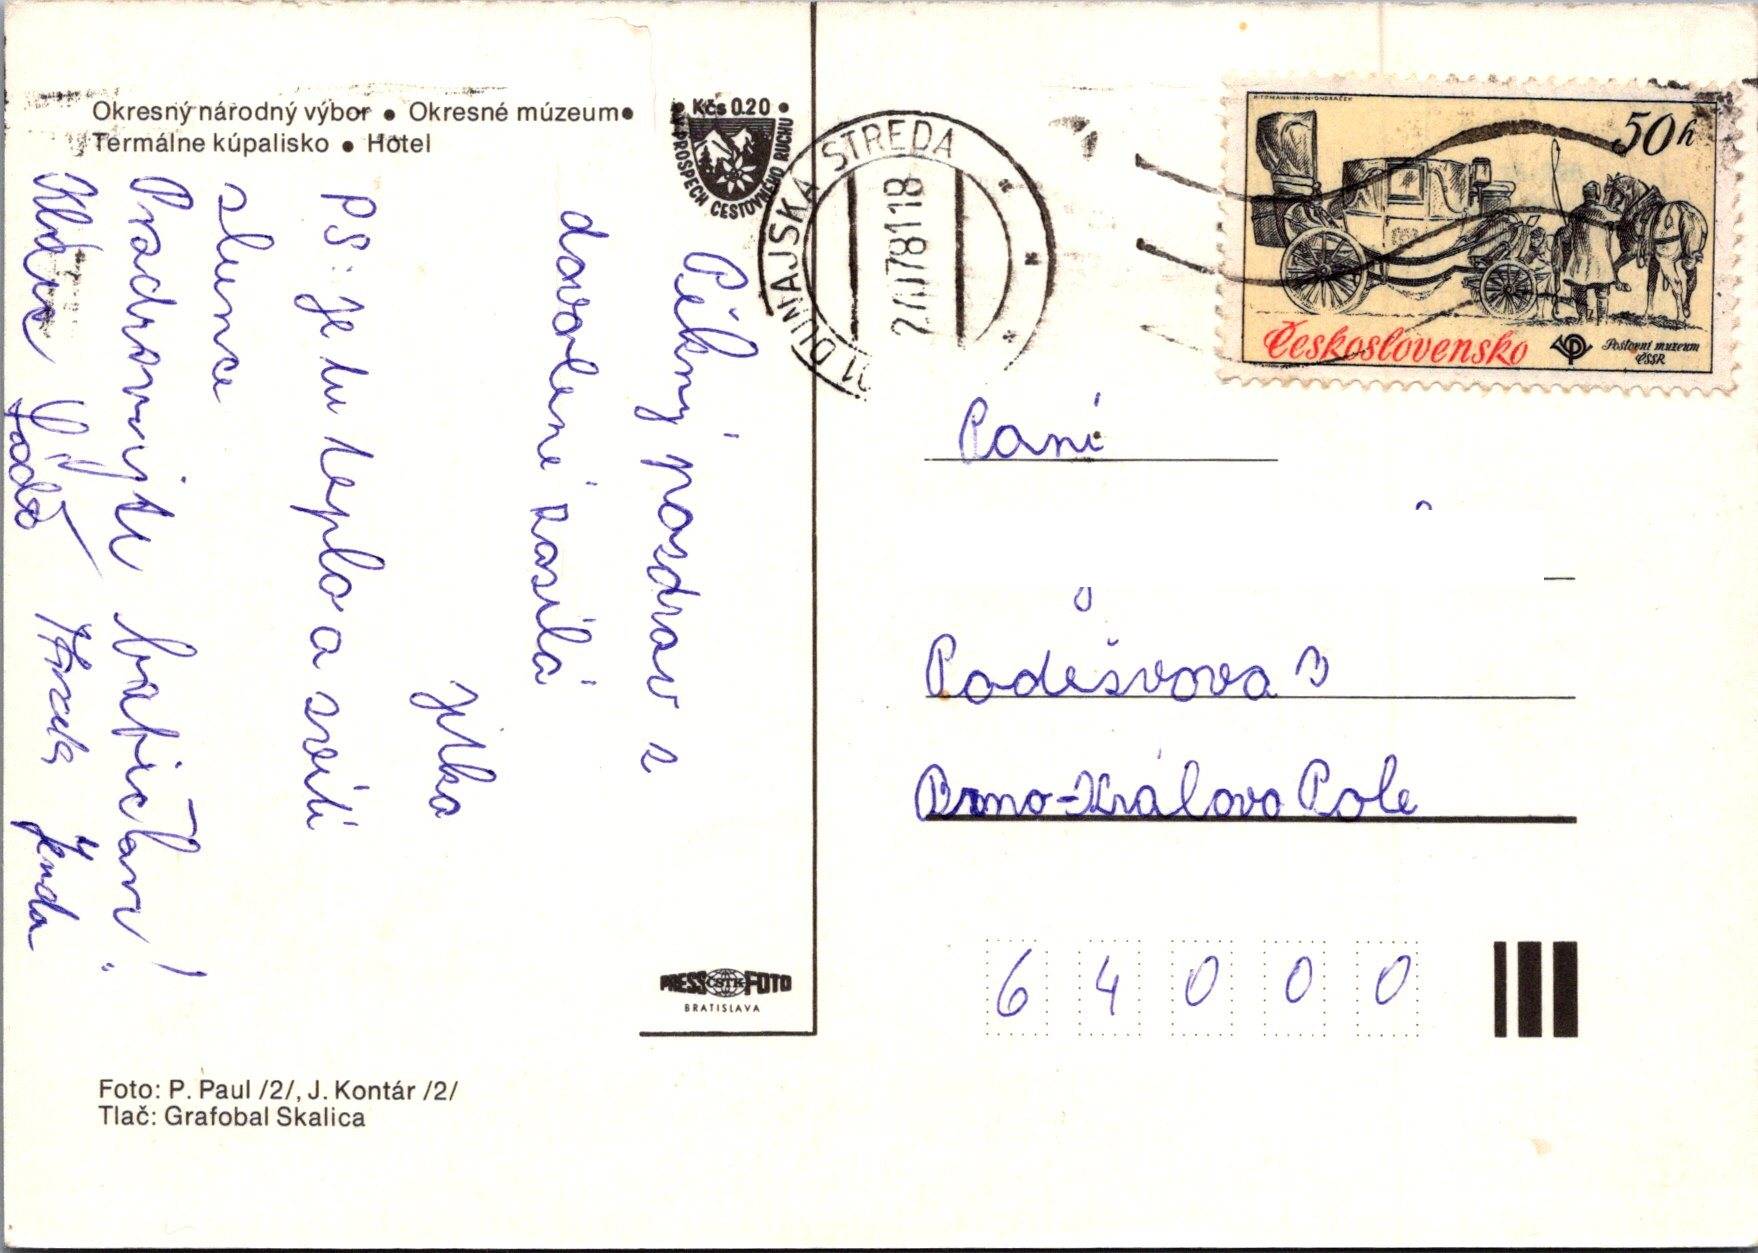 Okresný národný výbor • Okresné múzeum •
Termálne kúpalisko • Hotel
• Kčs 0.20 •
V PROSPECH CESTOVNÉHO RUCHU
DUNAJSKÁ STREDA
50h
Československo
Poštovní muzeum
ČSSR
Pěkný pozdrav z
dovolené zasílá
Jitka
PS: Je tu teplo a svítí
slunce
Pozdravujte babičku!
Jenda
Paní
Poděšvova 3
Brno-Královo Pole
64000
PRESS ČSTK FOTO
BRATISLAVA
Foto: P. Paul /2/, J. Kontár /2/
Tlač: Grafobal Skalica